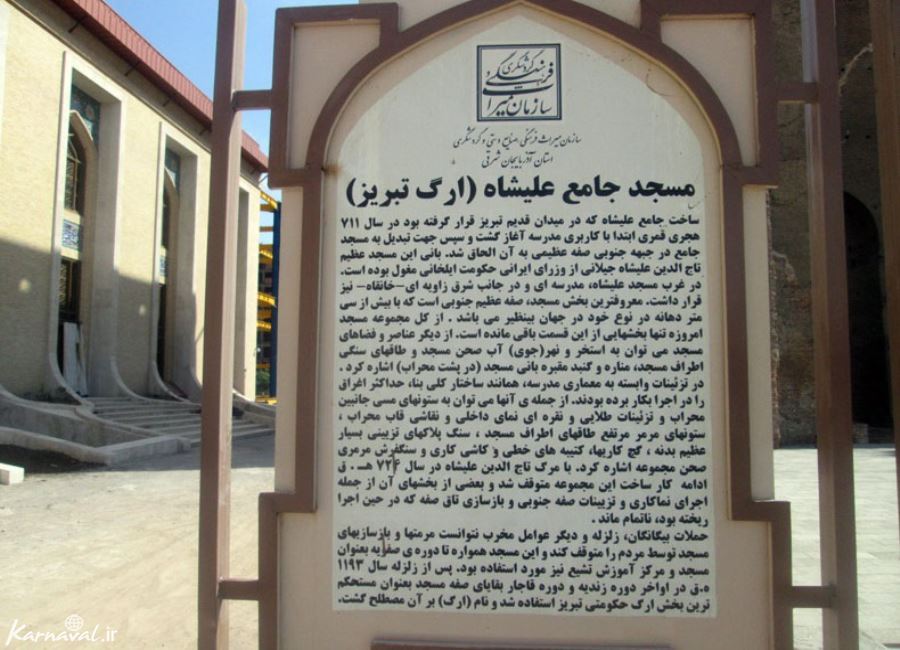 سازمان میراث فرهنگی و گردشگری
سازمان میراث فرهنگی، صنایع دستی و گردشگری
استان آذربایجان شرقی
مسجد جامع علیشاه (ارگ تبریز)
ساخت جامع علیشاه که در میدان قدیم تبریز قرار گرفته بود در سال ۷۱۱
هجری قمری ابتدا با کاربری مدرسه آغاز گشت و سپس جهت تبدیل به مسجد
جامع در جبهه جنوبی صفه عظیمی به آن الحاق شد. بانی این مسجد عظیم
تاج الدین علیشاه جیلانی از وزرای ایرانی حکومت ایلخانی مغول بوده است.
در غرب مسجد علیشاه، مدرسه ای و در جانب شرق زاویه ای-خانقاه- نیز
قرار داشت. معروفترین بخش مسجد، صفه عظیم جنوبی است که با بیش از سی
متر دهانه در نوع خود در جهان بینظیر می باشد . از کل مجموعه مسجد
امروزه تنها بخشهایی از این قسمت باقی مانده است. از دیگر عناصر و فضاهای
مسجد می توان به استخر و نهر(جوی) آب صحن مسجد و طاقهای سنگی
اطراف مسجد، مناره و گنبد مقبره بانی مسجد (در پشت محراب) اشاره کرد .
در تزئینات وابسته به معماری مدرسه، همانند ساختار کلی بنا، حداکثر اغراق
را در اجرا بکار برده بودند. از جمله ی آنها می توان به ستونهای مسی جانبین
محراب و تزئینات طلایی و نقره ای نمای داخلی و نقاشی قاب محراب ،
ستونهای مرمر مرتفع طاقهای اطراف مسجد ، سنگ پلاکهای تزیینی بسیار
عظیم بدنه ، گچ کاریها، کتیبه های خطی و کاشی کاری و سنگفرش مرمری
صحن مجموعه اشاره کرد. با مرگ تاج الدین علیشاه در سال ۷۲۴ هـ . ق
ادامه کار ساخت این مجموعه متوقف شد و بعضی از بخشهای آن از جمله
اجرای نماکاری و تزیینات صفه جنوبی و بازسازی تاق صفه که در حین اجرا
ریخته بود، ناتمام ماند .
حملات بیگانگان، زلزله و دیگر عوامل مخرب نتوانست مرمتها و بازسازیهای
مسجد توسط مردم را متوقف کند و این مسجد همواره تا دوره ی صفویه بعنوان
مسجد و مرکز آموزش تشیع نیز مورد استفاده بود. پس از زلزله سال ۱۱۹۳
ه.ق در اواخر دوره زندیه و دوره قاجار بقایای صفه مسجد بعنوان مستحکم
ترین بخش ارگ حکومتی تبریز استفاده شد و نام (ارگ) بر آن مصطلح گشت.
Karnaval.ir